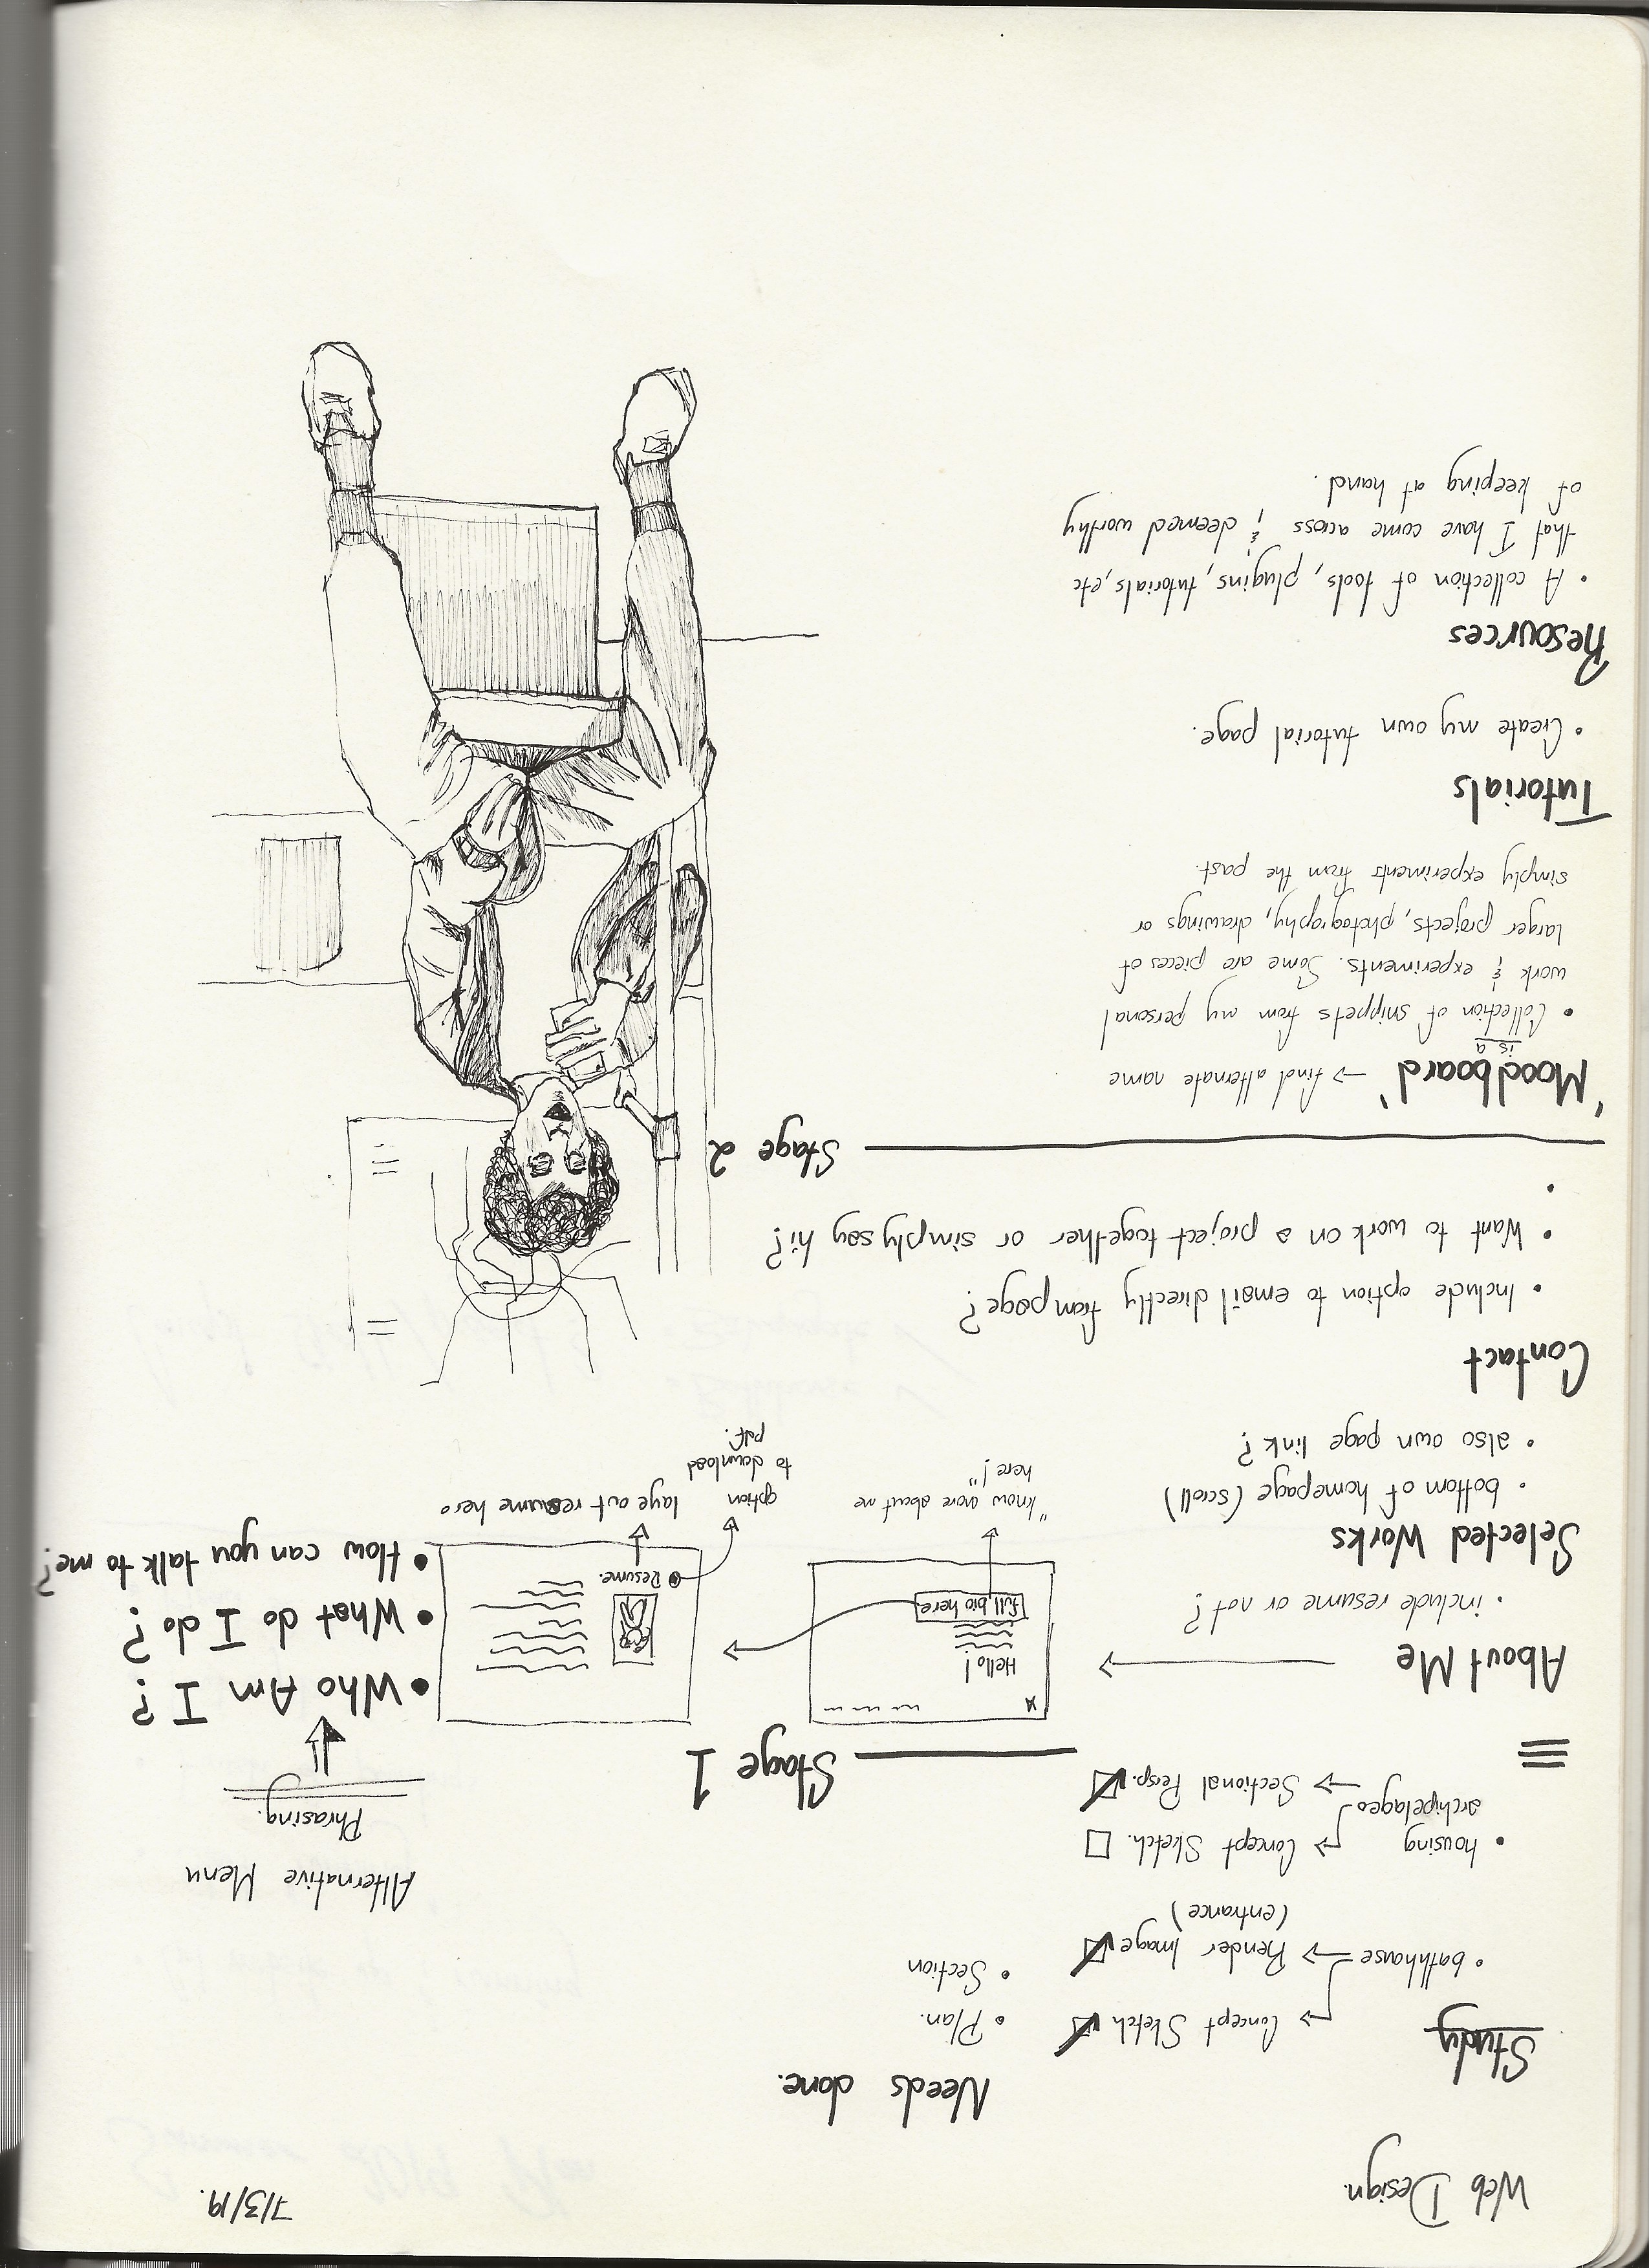 Web Design.
7/3/19.
Needs done.
• Plan.
• Section
Study
• bathhouse
Concept Sketch
Render Image
(entrance)
• housing
archipelageo
Concept Sketch.
Sectional Persp.
Stage 1
Alternative Menu
Phrasing.
• Who Am I?
• What do I do?
• How can you talk to me?
About Me
• include resume or not?
Hello!
full bio here
"know more about me
here!"
Resume.
option
to download
pdf.
laye out resume here
Selected Works
• bottom of homepage (scroll)
• also own page link?
Contact
• Include option to email directly from page?
• Want to work on a project together or simply say hi?
•
Stage 2
'Moodboard' → find alternate name
is a
• Collection of snippets from my personal
work & experiments. Some are pieces of
larger projects, photography, drawings or
simply experiments from the past.
Tutorials
• Create my own tutorial page.
Resources
• A collection of tools, plugins, tutorials, etc
that I have come across & deemed worthy
of keeping at hand.